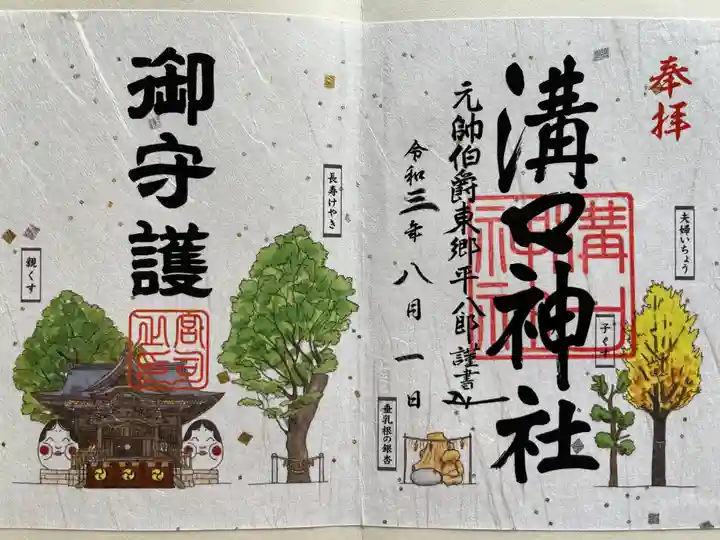 奉拝
溝口神社
溝口神社
元帥伯爵東郷平八郎謹書
令和三年八月一日
夫婦いちょう
子ぐす
垂乳根の銀杏
御守護
長寿けやき
親くす
宮司之印